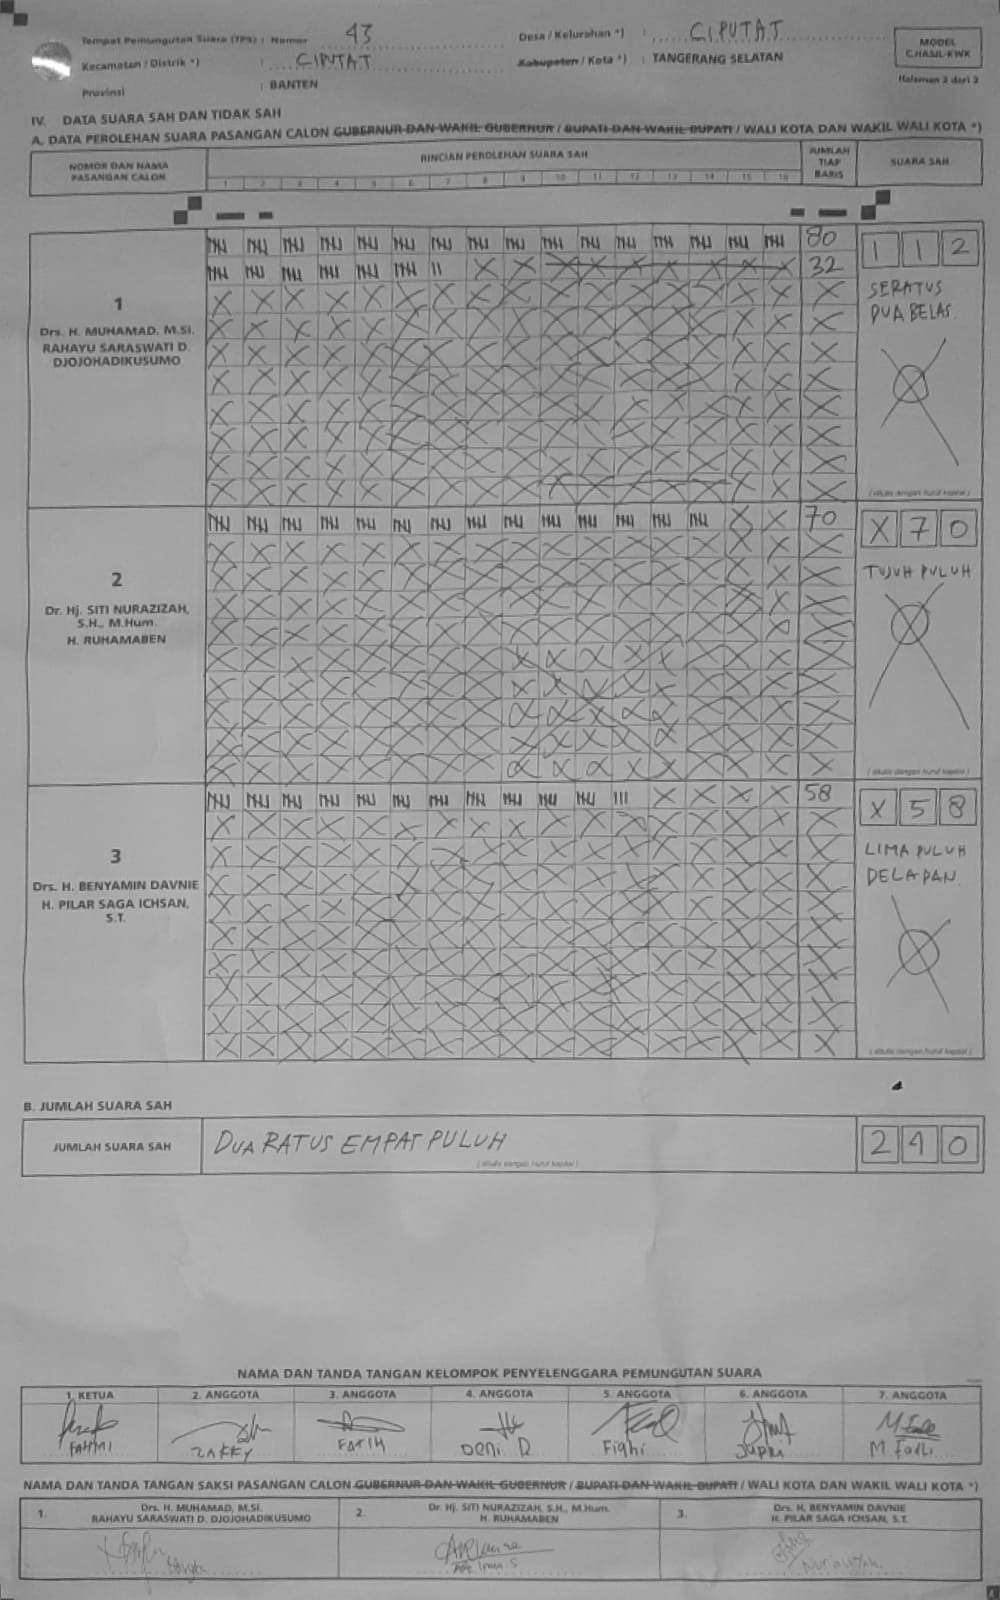 Tempat Pemungutan Suara (TPS) : Nomor 43 Desa / Kelurahan *) : CIPUTAT
Kecamatan / Distrik *) : CIPUTAT Kabupaten / Kota *) : TANGERANG SELATAN
Provinsi : BANTEN
MODEL
C.HASIL-KWK
Halaman 2 dari 2
IV. DATA SUARA SAH DAN TIDAK SAH
A. DATA PEROLEHAN SUARA PASANGAN CALON GUBERNUR DAN WAKIL GUBERNUR / BUPATI DAN WAKIL BUPATI / WALI KOTA DAN WAKIL WALI KOTA *)
NOMOR DAN NAMA PASANGAN CALON
RINCIAN PEROLEHAN SUARA SAH
1 2 3 4 5 6 7 8 9 10 11 12 13 14 15 16
JUMLAH TIAP BARIS
SUARA SAH
1
Drs. H. MUHAMAD, M.Si.
RAHAYU SARASWATI D.
DJOJOHADIKUSUMO
80
32
1 1 2
SERATUS
DUA BELAS.
(ditulis dengan huruf kapital)
2
Dr. Hj. SITI NURAZIZAH,
S.H., M.Hum.
H. RUHAMABEN
70
X 7 0
TUJUH PULUH
(ditulis dengan huruf kapital)
3
Drs. H. BENYAMIN DAVNIE
H. PILAR SAGA ICHSAN,
S.T.
58
X 5 8
LIMA PULUH
DELAPAN.
(ditulis dengan huruf kapital)
B. JUMLAH SUARA SAH
JUMLAH SUARA SAH DUA RATUS EMPAT PULUH 2 4 0
(ditulis dengan huruf kapital)
NAMA DAN TANDA TANGAN KELOMPOK PENYELENGGARA PEMUNGUTAN SUARA
1. KETUA 2. ANGGOTA 3. ANGGOTA 4. ANGGOTA 5. ANGGOTA 6. ANGGOTA 7. ANGGOTA
FAHMI ZAKKY FATIH DENI D Fighi JUPRI M. Fadli
NAMA DAN TANDA TANGAN SAKSI PASANGAN CALON GUBERNUR DAN WAKIL GUBERNUR / BUPATI DAN WAKIL BUPATI / WALI KOTA DAN WAKIL WALI KOTA *)
1. Drs. H. MUHAMAD, M.Si.
RAHAYU SARASWATI D. DJOJOHADIKUSUMO
2. Dr. Hj. SITI NURAZIZAH, S.H., M.Hum.
H. RUHAMABEN
3. Drs. H. BENYAMIN DAVNIE
H. PILAR SAGA ICHSAN, S.T.